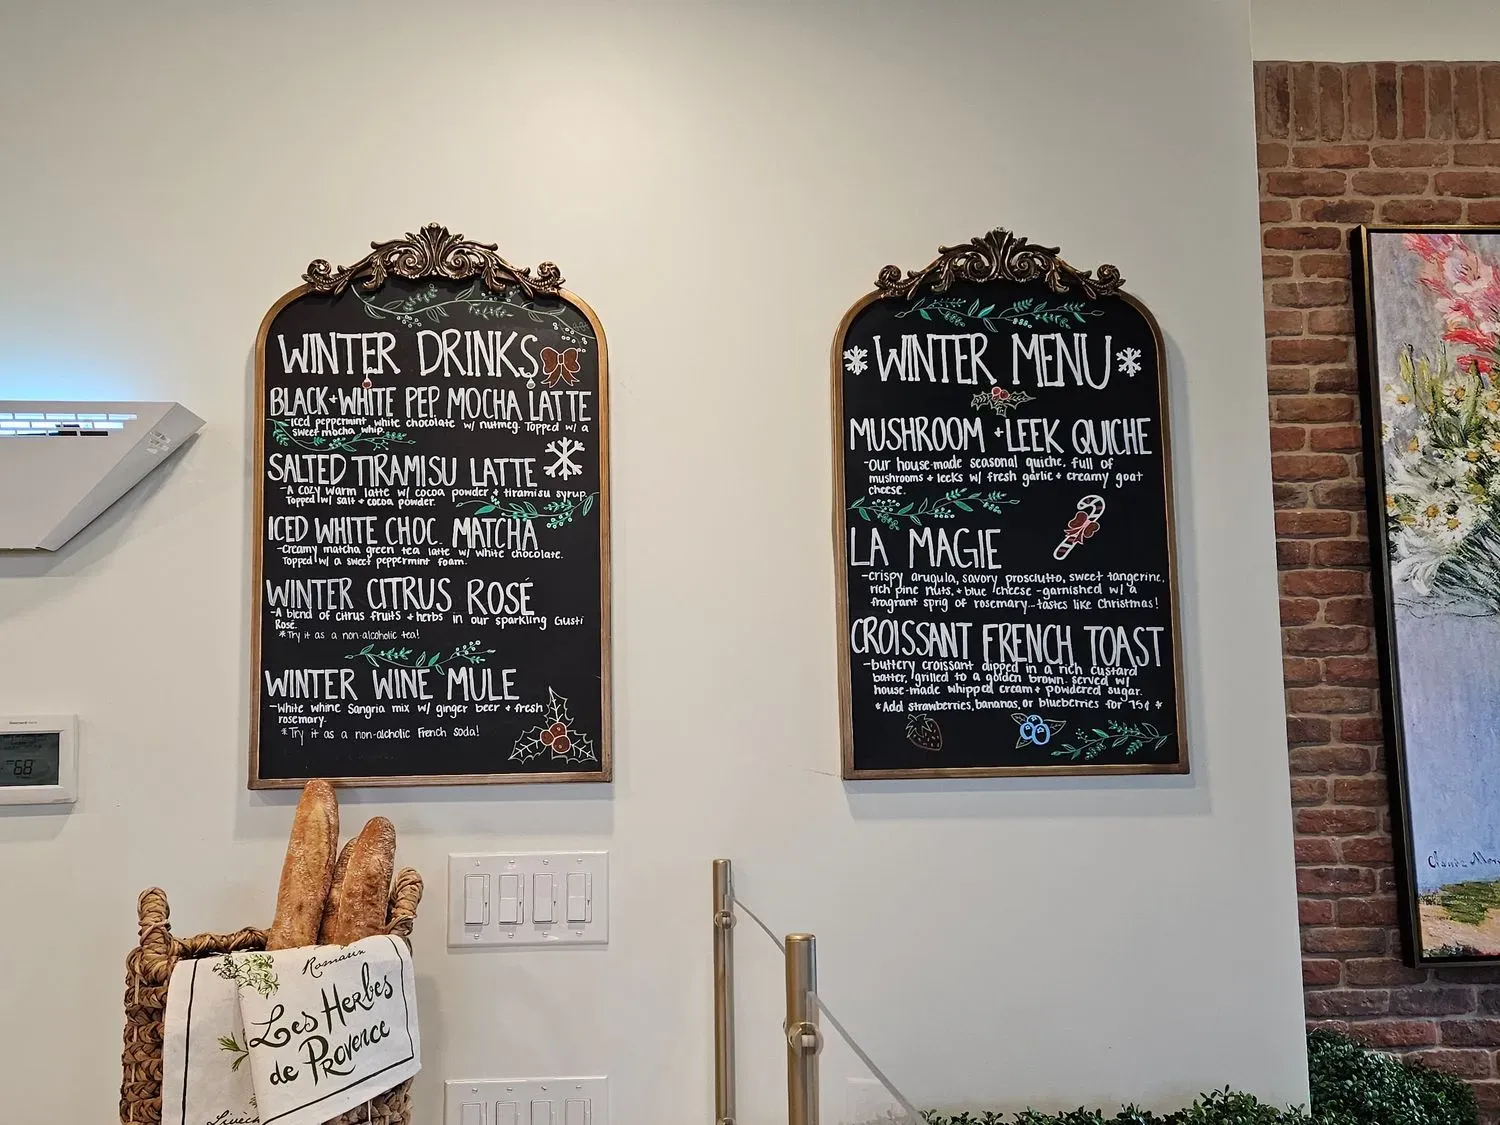 WINTER DRINKS
BLACK + WHITE PEP MOCHA LATTE
-Iced peppermint white chocolate w/ nutmeg. Topped w/ a
sweet mocha whip.
SALTED TIRAMISU LATTE
-A cozy warm latte w/ cocoa powder + tiramisu syrup.
Topped w/ salt + cocoa powder.
ICED WHITE CHOC. MATCHA
-Creamy matcha green tea latte w/ white chocolate.
Topped w/ a sweet peppermint foam.
WINTER CITRUS ROSÉ
-A blend of citrus fruits + herbs in our sparkling Gusti
Rosé.
*Try it as a non-alcoholic tea!
WINTER WINE MULE
-White whine Sangria mix w/ ginger beer + fresh
rosemary.
*Try it as a non-alcholic French Soda!
WINTER MENU
MUSHROOM + LEEK QUICHE
-Our house-made seasonal quiche, full of
mushrooms + leeks w/ fresh garlic + creamy goat
cheese.
LA MAGIE
-crispy arugula, savory prosciutto, sweet tangerine,
rich pine nuts, + blue cheese -garnished w/ a
fragrant sprig of rosemary...tastes like Christmas!
CROISSANT FRENCH TOAST
-buttery croissant dipped in a rich custard
batter, grilled to a golden brown. served w/
house-made whipped cream + powdered sugar.
*Add strawberries, bananas, or blueberries for 75¢ *
68
Romarin
Les Herbes
de Provence
Claude Mon